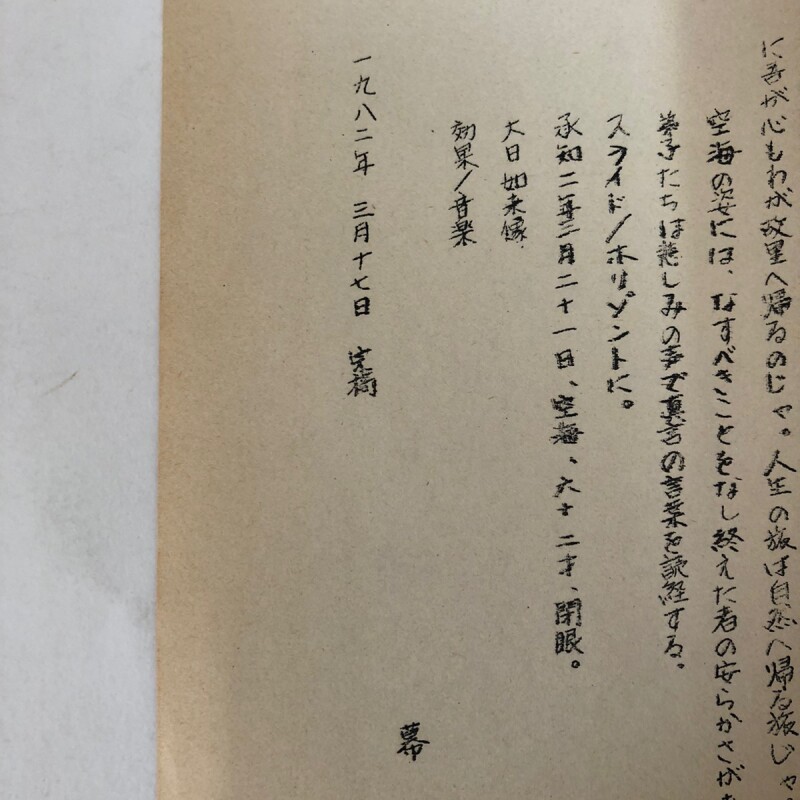 に吾が心もわが故里へ帰るのじゃ。人生の旅は自然へ帰る旅じゃ。
空海の姿には、なすべきことをなし終えた者の安らかさが
弟子たちは悲しみの声で真言の言葉を読経する。
スライド/ホリゾントに。
承知二年三月二十一日、空海、六十二才、閉眼。
大日如来像、
効果/音楽
幕
一九八二年 三月十七日 完稿